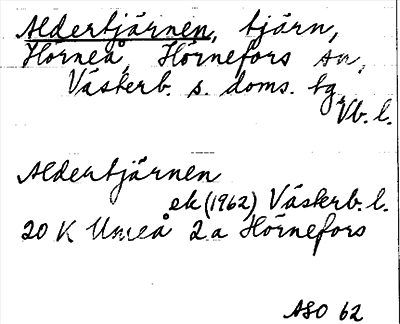 Aldertjärnen, tjärn,
Horneå, Hörnefors sn,
Västerb. s. doms. tg,
Vb. l.
Aldertjärnen
ek (1962) Västerb. l.
20 K Umeå 2 a Hörnefors
ASO 62